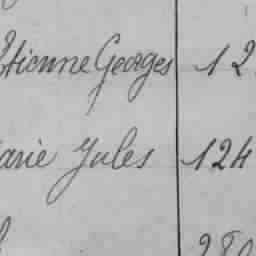 Etienne Georges 12
arie Jules 124
280